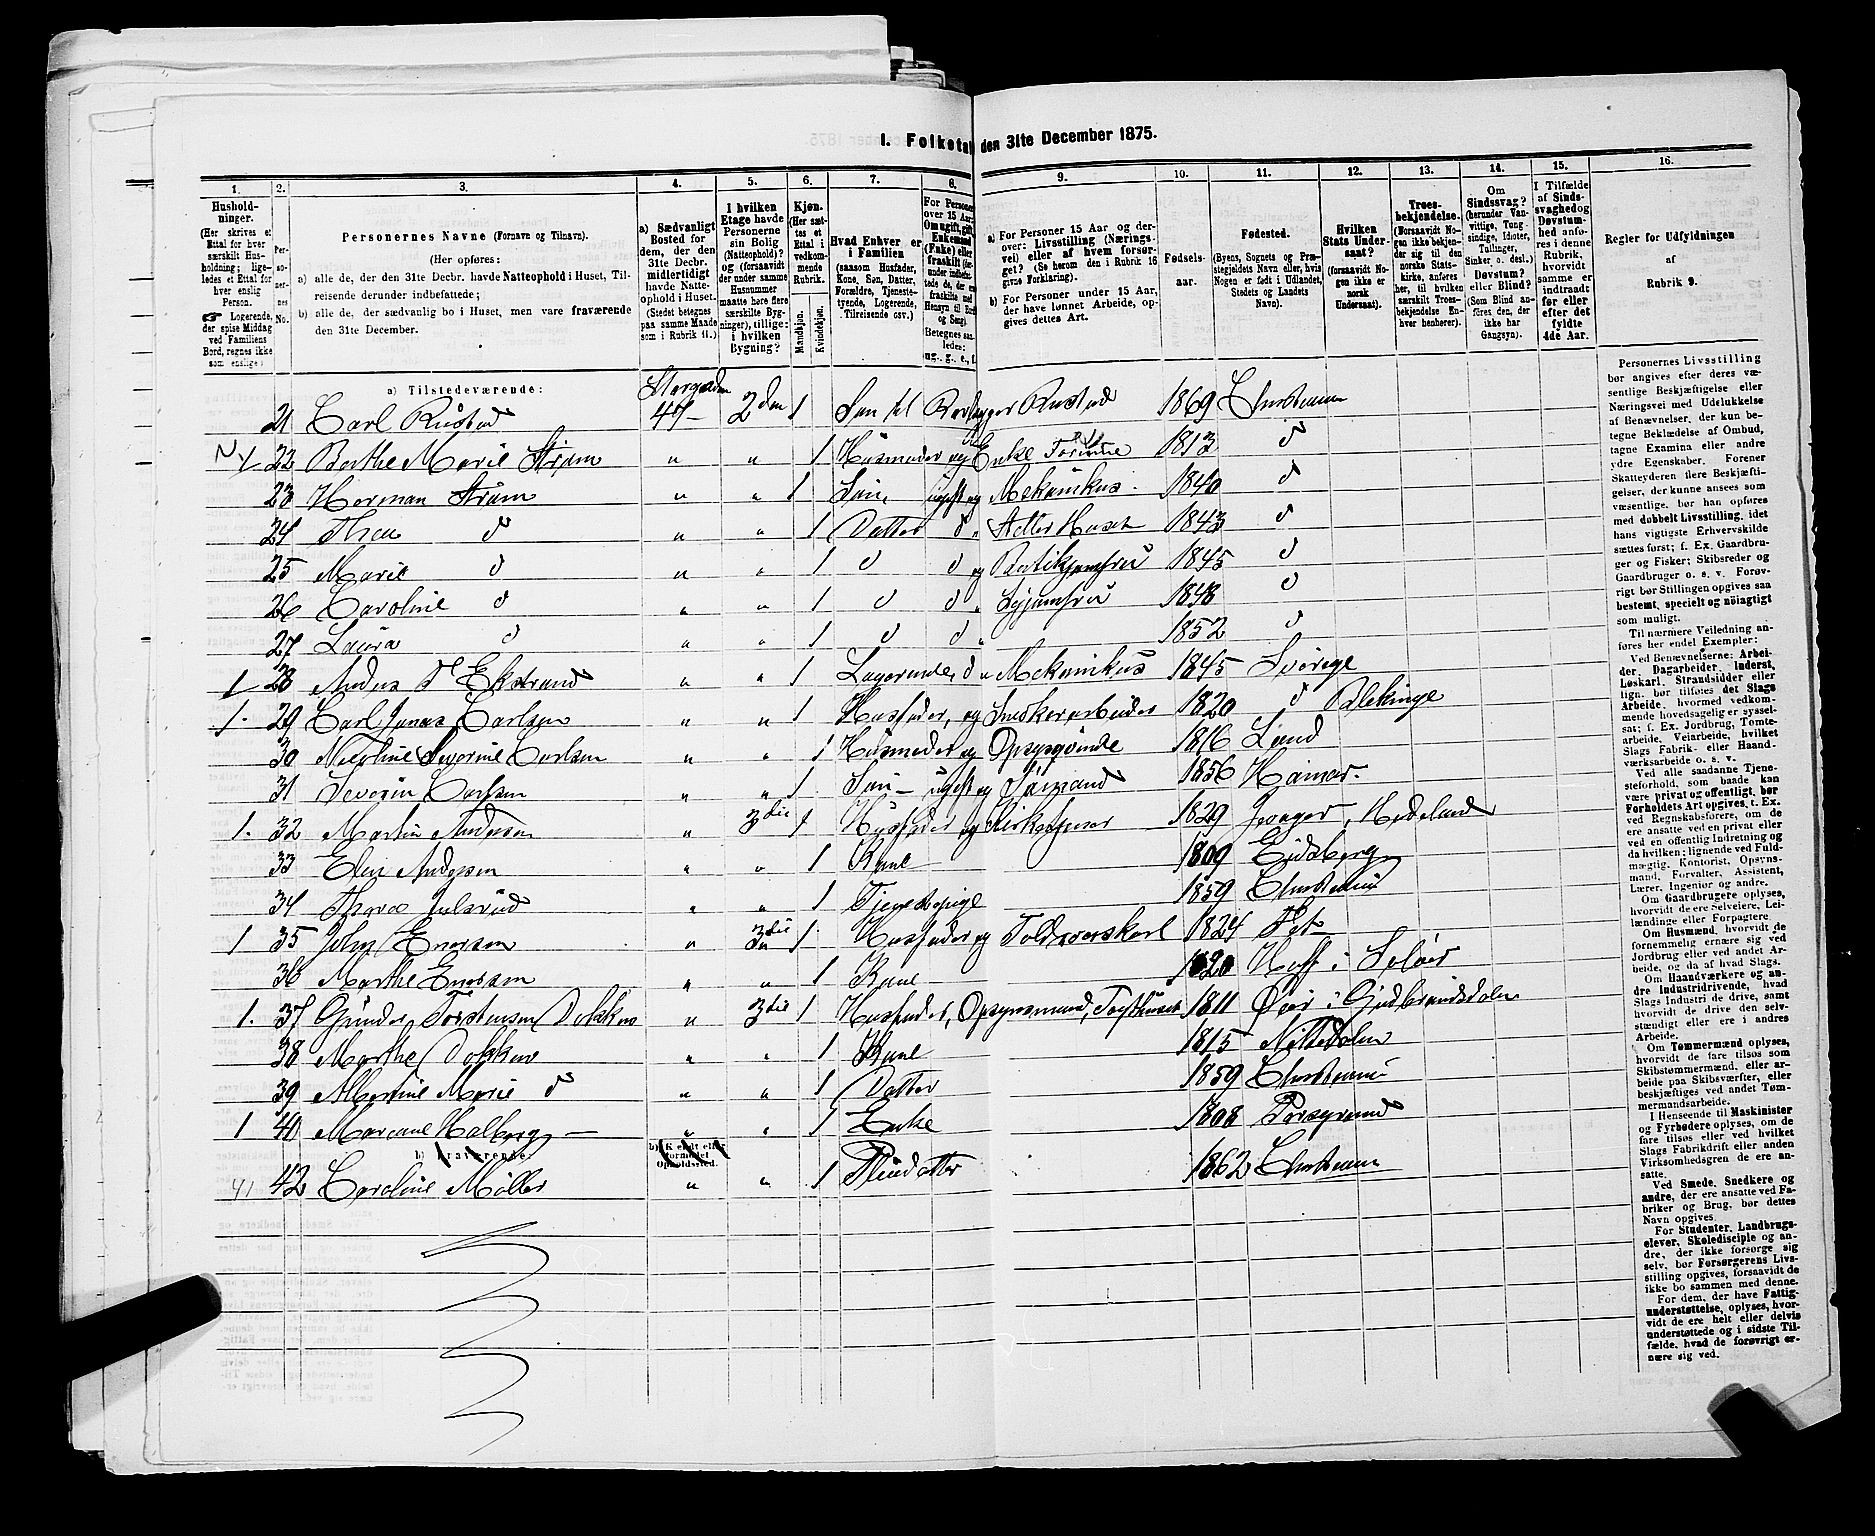 1. Folketal den 31te December 1875.
1. 2. 3. 4. 5. 6. 7. 8. 9. 10. 11. 12. 13. 14. 15. 16.
Hushold-
ninger.
(Her skrives et
Ettal for hver
særskilt Hus-
holdning; lige-
ledes et Ettal for
hver enslig
Person.
☞ Logerende,
der spise Middag
ved Familiens
Bord, regnes ikke
som enslige.)
Per-
so-
ner-
nes
No.
Personernes Navne (Fornavn og Tilnavn).
(Her opføres:
a) alle de, der den 31te Decbr. havde Natteophold i Huset, Til-
reisende derunder indbefattede;
b) alle de, der sædvanlig bo i Huset, men vare fraværende
den 31te December.
a) Sædvanligt
Bosted for
dem, der den
31te Decbr.
midlertidigt
havde Natte-
ophold i Huset.
(Stedet betegnes
paa samme Maade
som i Rubrik 11.)
I hvilken
Etage havde
Personerne
sin Bolig
(Natteophold)?
og (forsaavidt
der under samme
Husnummer
maatte høre flere
særskilte Byg-
ninger), tillige:
i hvilken
Bygning?
Kjøn.
(Her sæt-
tes et
Ettal i
vedkom-
mende
Rubrik.)
Mandkjøn.
Kvindekjøn.
Hvad Enhver er
i Familien
(saasom Husfader,
Kone, Søn, Datter,
Forældre, Tjeneste-
tyende, Logerende,
Tilreisende osv.)
For Personer
over 15 Aar:
Om ugift, gift,
Enkemand
(Enke) eller
fraskilt
Betegnes saa-
leden:
ug., g., e., f.
a) For Personer 15 Aar og der-
over: Livsstilling (Nærings-
vei) eller af hvem forsør-
get? (Se herom den i Rubrik 16
givne Forklaring).
b) For Personer under 15 Aar,
der have lønnet Arbeide, op-
gives dettes Art.
Fødsels-
aar.
Fødested.
(Byens, Sognets og Præ-
stegjeldets Navn eller, hvis
Nogen er født i Udlandet,
Stedets og Landets
Navn).
Hvilken
Stats Under-
saat?
(forsaavidt No-
gen ikke er
norsk
Undersaat).
Troes-
bekjendelse.
(Forsaavidt No-
gen ikke bekjen-
der sig til den
norske Stats-
kirke, anføres
her, til hvilken
særskilt Troes-
bekjendelse En-
hver henhører).
Om
Sindssvag?
(herunder Van-
vittige, Tung-
sindige, Idioter,
Tullinger,
Sinker o. desl.)
Døvstum?
eller Blind?
(Som Blind an-
føres den, der
ikke har
Gangsyn).
I Tilfælde
af Sinds-
svaghed og
Døvstum-
hed anfø-
res i denne
Rubrik,
hvorvidt
samme er
indtraadt
før eller
efter det
fyldte
4de Aar.
Regler for Udfyldningen
af
Rubrik 9.
a) Tilstedeværende:
21 Carl Rustad Storgaden 41 - 2den 1 Søn til Rustad 1869 Christiania
1 22 Berthe Marie Strøm " " 1 Husmoder og Enke 1813 d
23 Herman Strøm " " 1 Søn, ugift og Mekanikus 1840 d
24 Thea d " " 1 Datter d " 1843 d
25 Marie d " " 1 d d og Butikjomfru 1845 d
26 Caroline d " " 1 d d " Syjomfru 1848 d
27 Laura d " " 1 d d " 1852 d
1 28 Anders Ekstrand " " 1 Logerende, d " Mekanikus 1845 Sverige
1. 29 Carl Jonas Carlsen " " 1 Husfader, og Snekkerarbeider 1820 d Blekinge
30 Nicoline Severine Carlsen " " 1 Husmoder og 1816 Lund
31 Severin Carlsen " " 1 Søn - ugift og Sømand 1856 Hamar
1. 32 Martin Andersen " 3die 1 Husfader og Kirketjener 1829 Hedeland
33 Elen Andersen " " 1 Kone 1809 Eidsberg
34 Thora Julsrud " " 1 Tjenestepige 1859 Christiania
1 35 John Enersen " 3die 1 Husfader og 1824 Fet
36 Marthe Enersen " " 1 Kone 1820 Hoff i Soløer
1. 37 Gunder Torstensen Dokken " 3die 1 Husfader, Opsynsmand, Tugthuset 1811 Øier i Gudbrandsdalen
38 Marthe Dokken " " 1 Kone 1815 Nittedalen
39 Albertine Marie d " " 1 Datter 1859 Christiania
1 40 Mariane Holberg - " " 1 Enke 1808 Porsgrund
b) Fraværende: b) Kjendt eller
formodet
Opholdssted.
41 42 Caroline Møller " " 1 Pleiedatter 1862 Christiania
Personernes Livsstilling
bør angives efter deres væ-
sentlige Beskjæftigelse eller
Næringsvei med Udelukkelse
af Benævnelser, der kun be-
tegne Beklædelse af Ombud,
tagne Examina eller andre
ydre Egenskaber. Forener
Skatteyderen flere Beskjæfti-
gelser, der kunne ansees som
væsentlige, bør han opføres
med dobbelt Livsstilling, idet
hans vigtigste Erhvervskilde
sættes først; f. Ex. Gaardbru-
ger og Fisker; Skibsreder og
Gaardbruger o. s. v. Forøv-
rigt bør Stillingen opgives saa
bestemt, specielt og nøiagtigt
som muligt.
Til nærmere Veiledning an-
føres her endel Exempler:
Ved Benævnelserne: Arbei-
der, Dagarbeider, Inderst,
Løskarl, Strandsidder eller
lign. bør tilføies det Slags
Arbeide, hvormed vedkom-
mende hovedsagelig er syssel-
sat; f. Ex. Jordbrug, Tomte-
arbeide, Veiarbeide, hvilket
Slags Fabrik- eller Haand-
værksarbeide o. s. v.
Ved alle saadanne Tjene-
steforhold, som baade kan
være privat og offentligt, bør
Forholdets Art opgives, t. Ex.
ved Regnskabsførere, om de
ere ansatte ved en privat eller
ved en offentlig Indretning og
da hvilken; lignende ved Fuld-
mægtig, Kontorist, Opsyns-
mand, Forvalter, Assistent,
Lærer, Ingeniør og andre.
Om Gaardbrugere oplyses,
hvorvidt de ere Selveiere, Lei-
lændinge eller Forpagtere.
Om Husmænd, hvorvidt de
fornemmelig ernære sig ved
Jordbrug eller ved andet Ar-
beide, og da af hvad Slags.
Om Haandværkere og an-
dre Industridrivende, hvad
Slags Industri de drive, samt
hvorvidt de drive den selv-
stændigt eller ere i andres
Arbeide.
Om Tømmermænd oplyses,
hvorvidt de fare tilsøs som
Skibstømmermænd, eller ar-
beide paa Skibsværfter, eller
beskjæftiges ved andet Tøm-
mermandsarbeide.
I Henseende til Maskinister
og Fyrbødere oplyses, om de
fare tilsøs eller ved hvilket
Slags Fabrikdrift eller anden
Virksomhedsgren de ere an-
satte.
Ved Smede, Snedkere og
andre, der ere ansatte ved Fa-
briker og Brug, bør dettes
Navn opgives.
For Studenter, Landbrugs-
elever, Skoledisciple og an-
dre, der ikke forsørge sig
selv, bør Forsørgerens Livs-
stilling opgives, forsaavidt de
ikke bo sammen med denne.
For dem, der have Fattig-
understøttelse, oplyses, hvor-
vidt de ere helt eller delvis
understøttede og i sidste Til-
fælde, hvad de forøvrigt er-
nære sig ved.